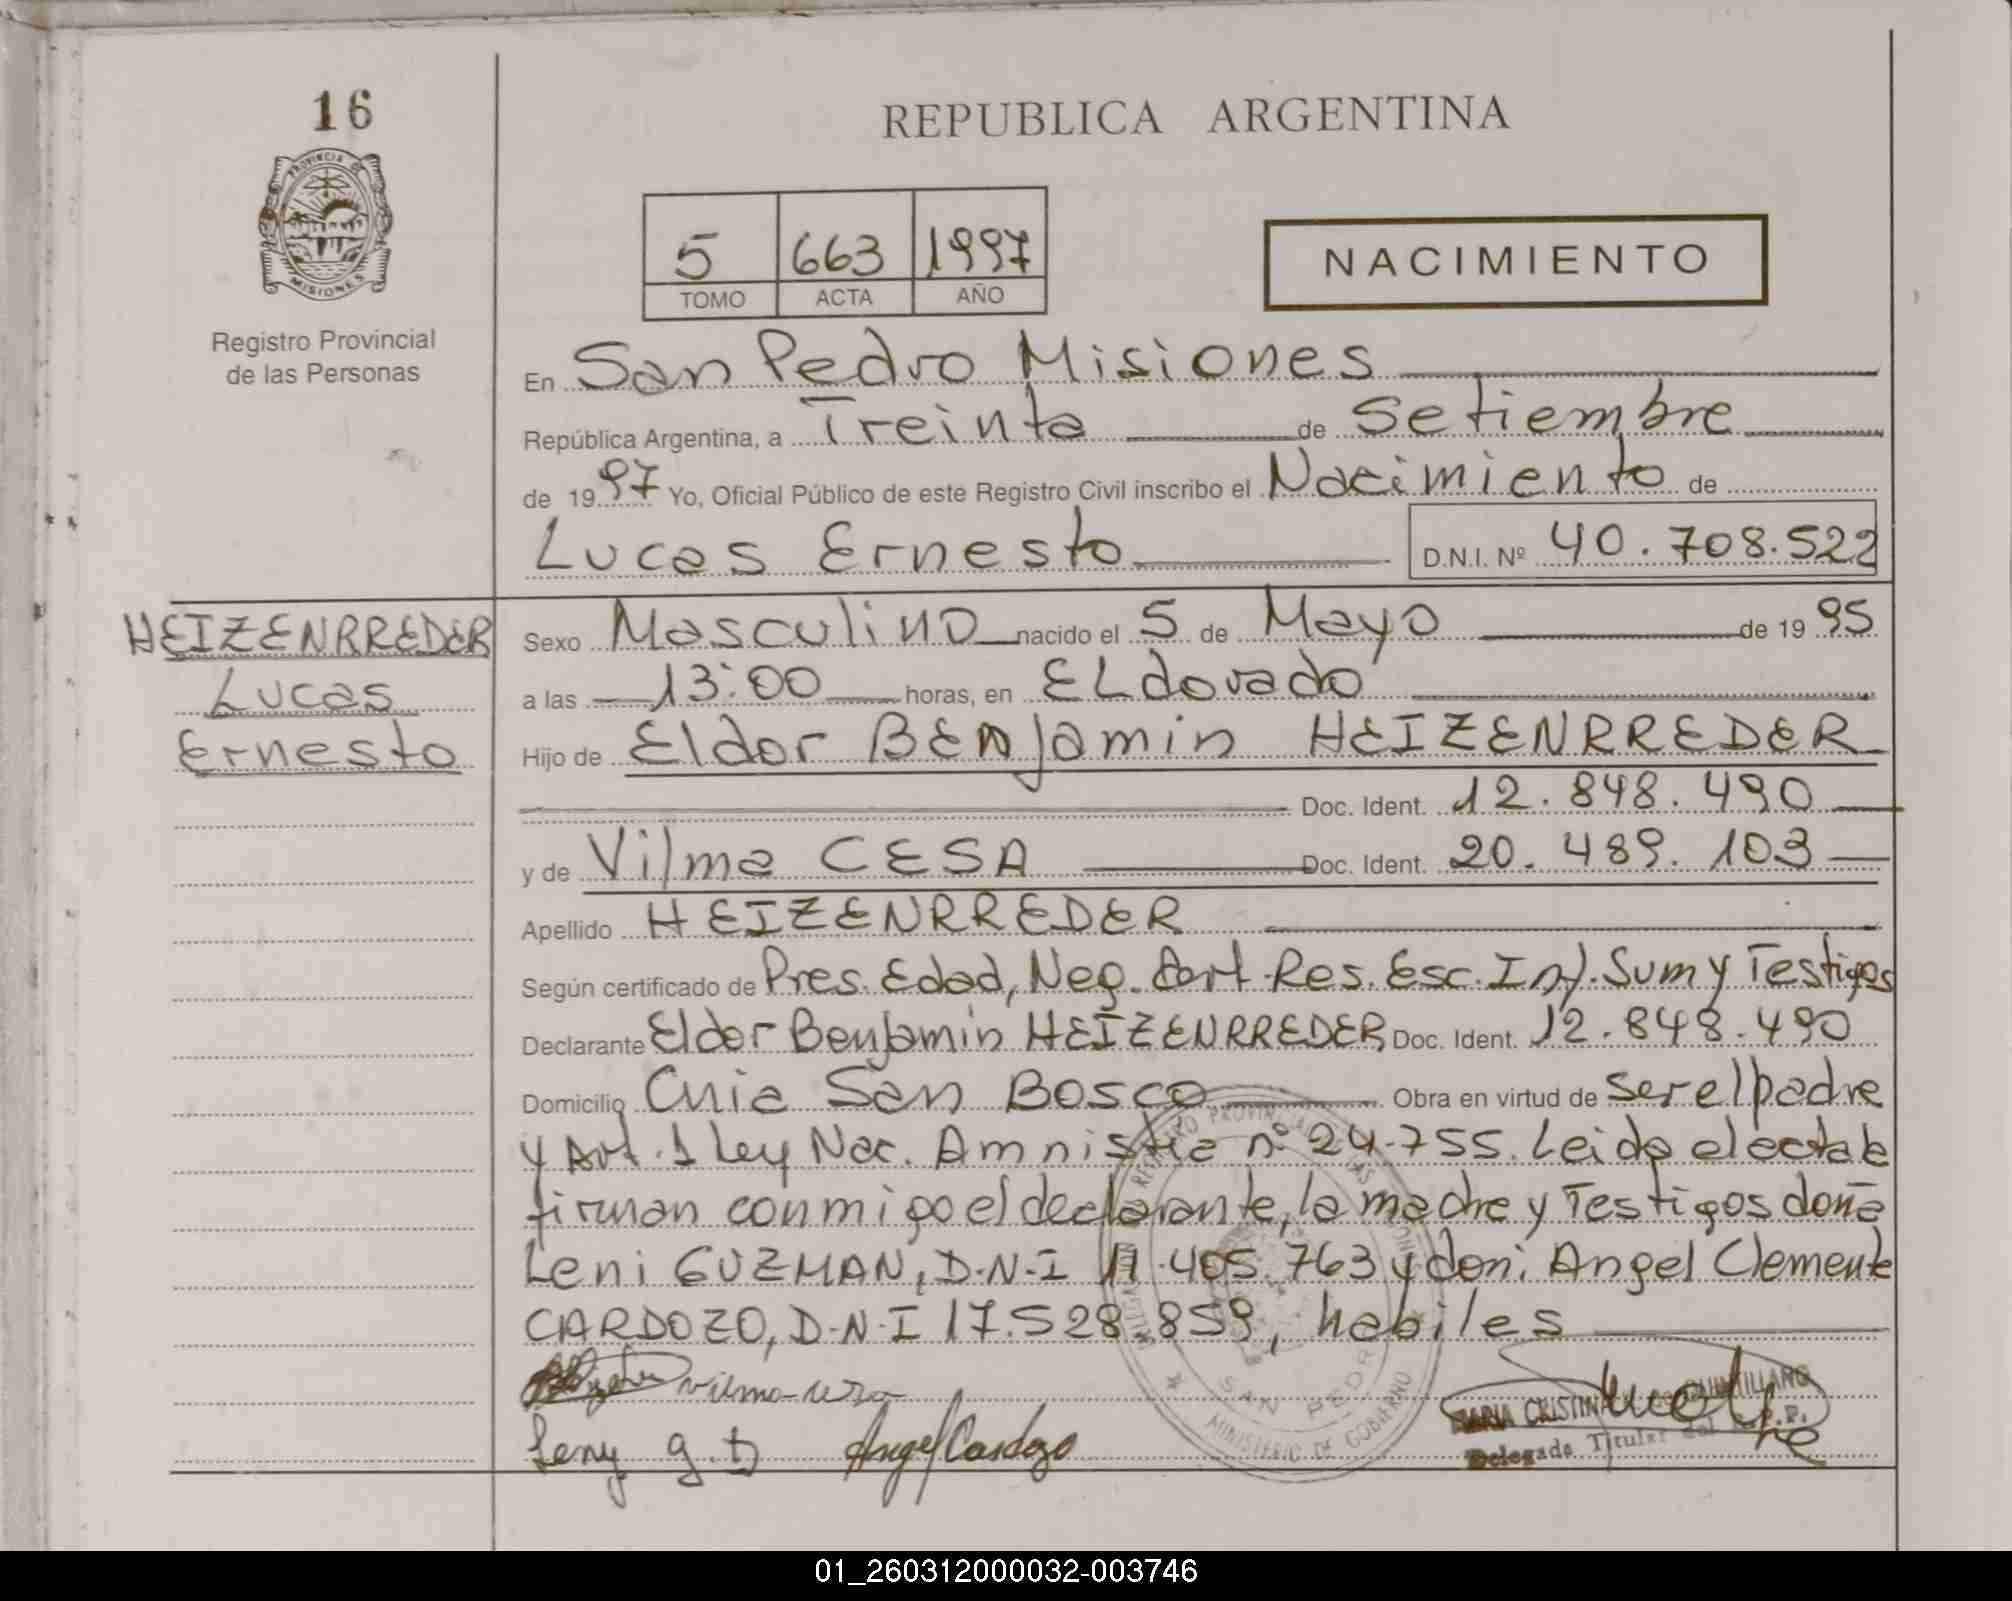 16
REPUBLICA ARGENTINA
PROVINCIA DE
MISIONES
Registro Provincial
de las Personas
5 663 1997
TOMO ACTA AÑO
NACIMIENTO
En San Pedro Misiones
República Argentina, a Treinta de Setiembre
de 1997 Yo, Oficial Público de este Registro Civil inscribo el Nacimiento de
Lucas Ernesto D.N.I. Nº 40.708.522
HEIZENRREDER
Lucas
Ernesto
Sexo Masculino nacido el 5 de Mayo de 1995
a las 13:00 horas, en ELdorado
Hijo de Eldor BENjamin HEIZENRREDER
Doc. Ident. 12.848.490
y de Vilma CESA Doc. Ident. 20.489.103
Apellido HEIZENRREDER
Según certificado de Pres. Edad, Neg. Part. Res. Esc. Inf. Sum y Testigos
Declarante Eldor Benjamin HEIZENRREDER Doc. Ident. 12.848.490
Domicilio Cnia San Bosco Obra en virtud de ser el padre
y Art. 1 Ley Nac. Amnistia nº 24.755. Leida el acta la
firman conmigo el declarante, la madre y Testigos doña
Leni GUZMAN, D.N.I 11.405.763 y don: Angel Clemente
CARDOZO, D.N.I 17.528.859, habiles
Leny g. D Angel Cardozo
MARIA CRISTINA
Delegada Titular del R.P.P.
SAN PEDRO
MINISTERIO DE GOBIERNO
01_260312000032-003746